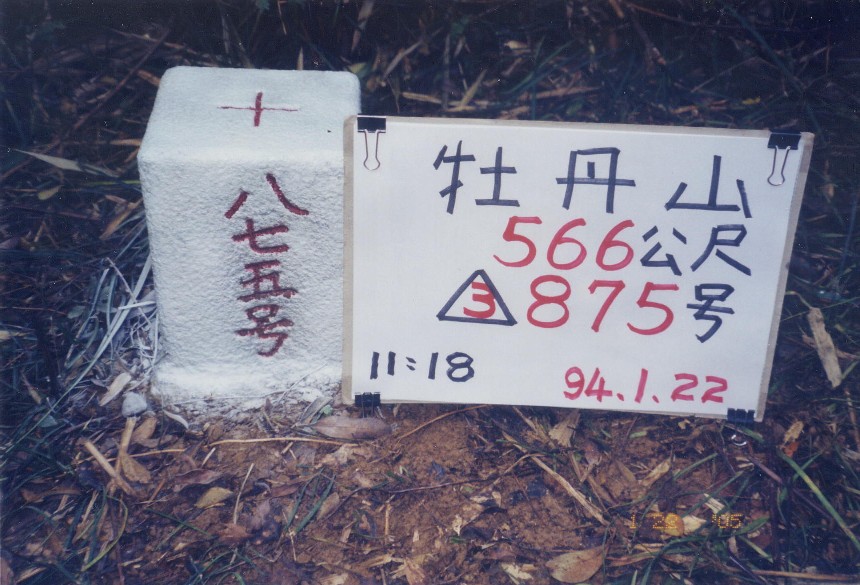 十
八七五号
牡丹山
566公尺
3 875号
11:18
94.1.22
1 22 '05